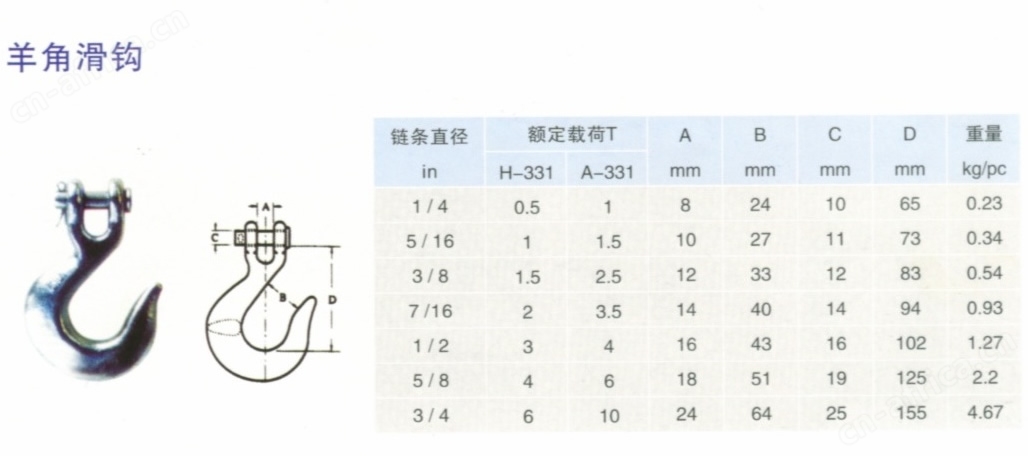 羊角滑钩
链条直径 额定载荷T A B C D 重量
in H-331 A-331 mm mm mm mm kg/pc
1/4 0.5 1 8 24 10 65 0.23
5/16 1 1.5 10 27 11 73 0.34
3/8 1.5 2.5 12 33 12 83 0.54
7/16 2 3.5 14 40 14 94 0.93
1/2 3 4 16 43 16 102 1.27
5/8 4 6 18 51 19 125 2.2
3/4 6 10 24 64 25 155 4.67
A
C
B
D